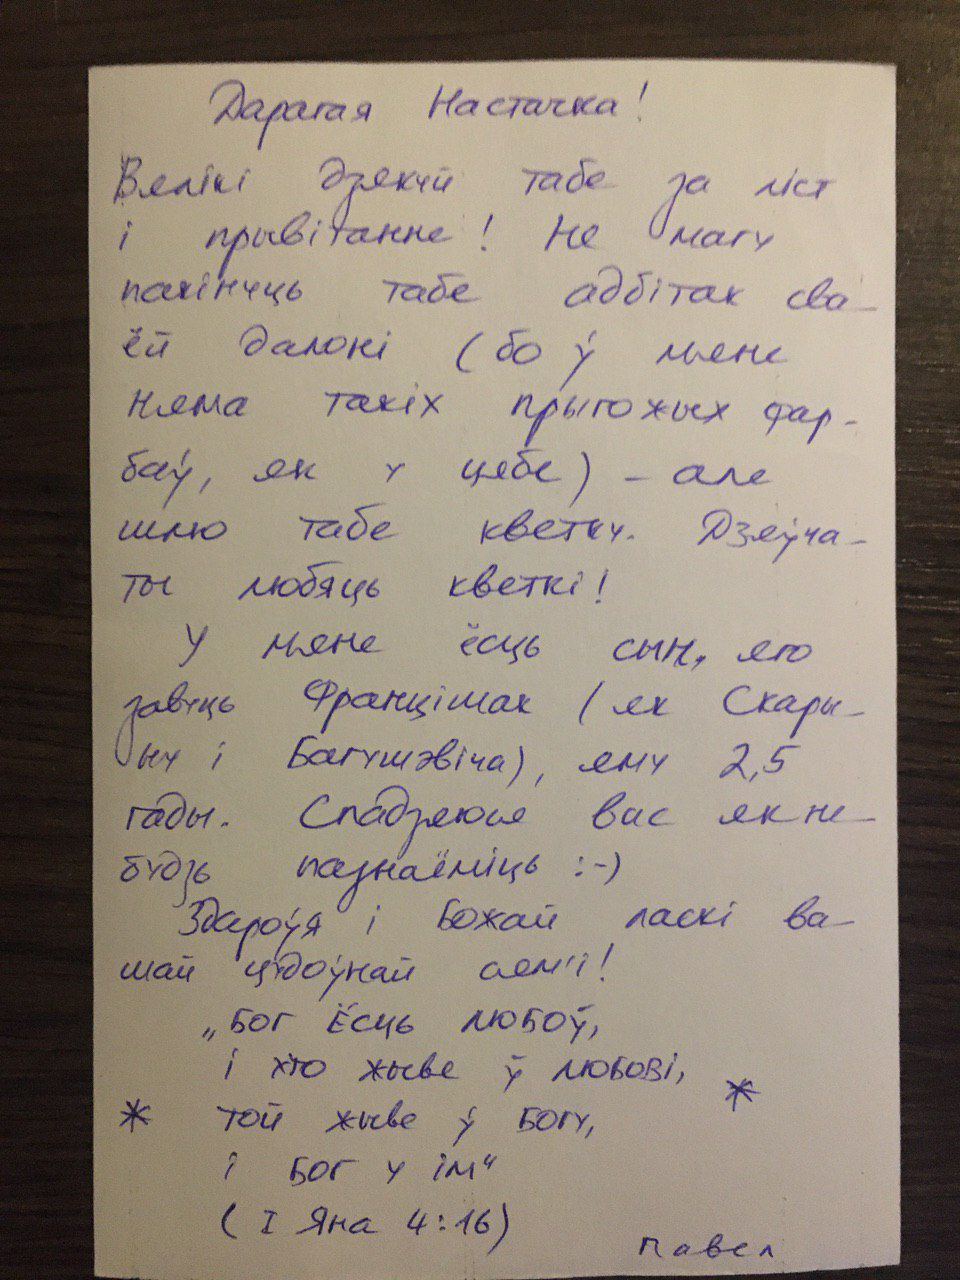 Дарагая Настачка!
Вялікі дзякуй табе за ліст
і прывітанне! Не магу
пакінуць табе адбітак сва-
ёй далоні (бо ў мяне
няма такіх прыгожых фар-
баў, як у цябе) – але
шлю табе кветку. Дзяўча-
ты любяць кветкі!
У мяне ёсць сын, яго
завуць Францішак (як Скары-
ну і Багушэвіча), яму 2,5
гады. Спадзяюся вас як не-
будзь пазнаёміць :-)
Здароўя і Божай ласкі ва-
шай цудоўнай сям'і!
„Бог ёсць любоў,
і хто жыве ў любові,
* той жыве ў Богу, *
і Бог у ім“
(I Яна 4:16)
Павел